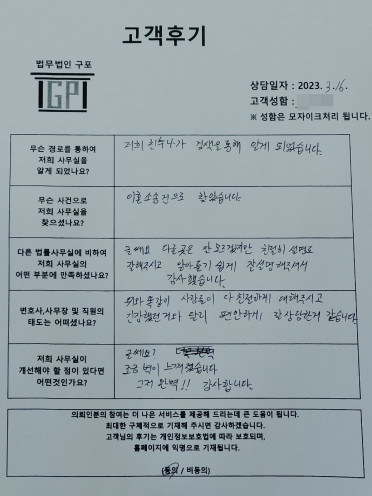 고객후기
법무법인 구포
GP
상담일자 : 2023. 3. 16.
고객성함 :
※ 성함은 모자이크처리 됩니다.
무슨 경로를 통하여
저희 사무실을
알게 되었나요?
저희 친누나가 검색을 통해 알게 되었습니다.
무슨 사건으로
저희 사무실을
찾으셨나요?
이혼소송건으로 찾았습니다.
다른 법률사무소에 비하여
저희 사무실의
어떤 부분에 만족하셨나요?
글쎄요 다른곳은 안 친절히 설명도
잘해주시고 알아듣기 쉽게 잘설명해주셔서
감사했습니다.
변호사,사무장 및 직원의
태도는 어떠셨나요?
위와 똑같이 다 친절하게 대해주시고
긴장했던거와 달리 편안하게 잘상담한거 같습니다.
저희 사무실이
개선해야 할 점이 있다면
어떤것인가요?
글쎄요?
조금 벽이 느껴졌습니다
그저 완벽!! 감사합니다.
의뢰인분의 참여는 더 나은 서비스를 제공해 드리는데 큰 도움이 됩니다.
최대한 구체적으로 기재해 주시면 감사하겠습니다.
고객님의 후기는 개인정보보호법에 따라 보호되며,
홈페이지에 익명으로 기재됩니다.
(동의 / 비동의)